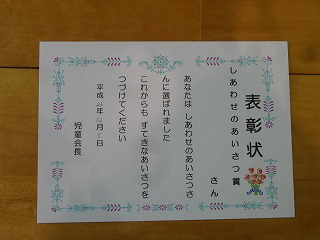 表彰状
しあわせのあいさつ賞
さん
あなたは しあわせのあいさつさ
んに選ばれました
これからも すてきなあいさつを
つづけてください
平成 年 月 日
児童会長